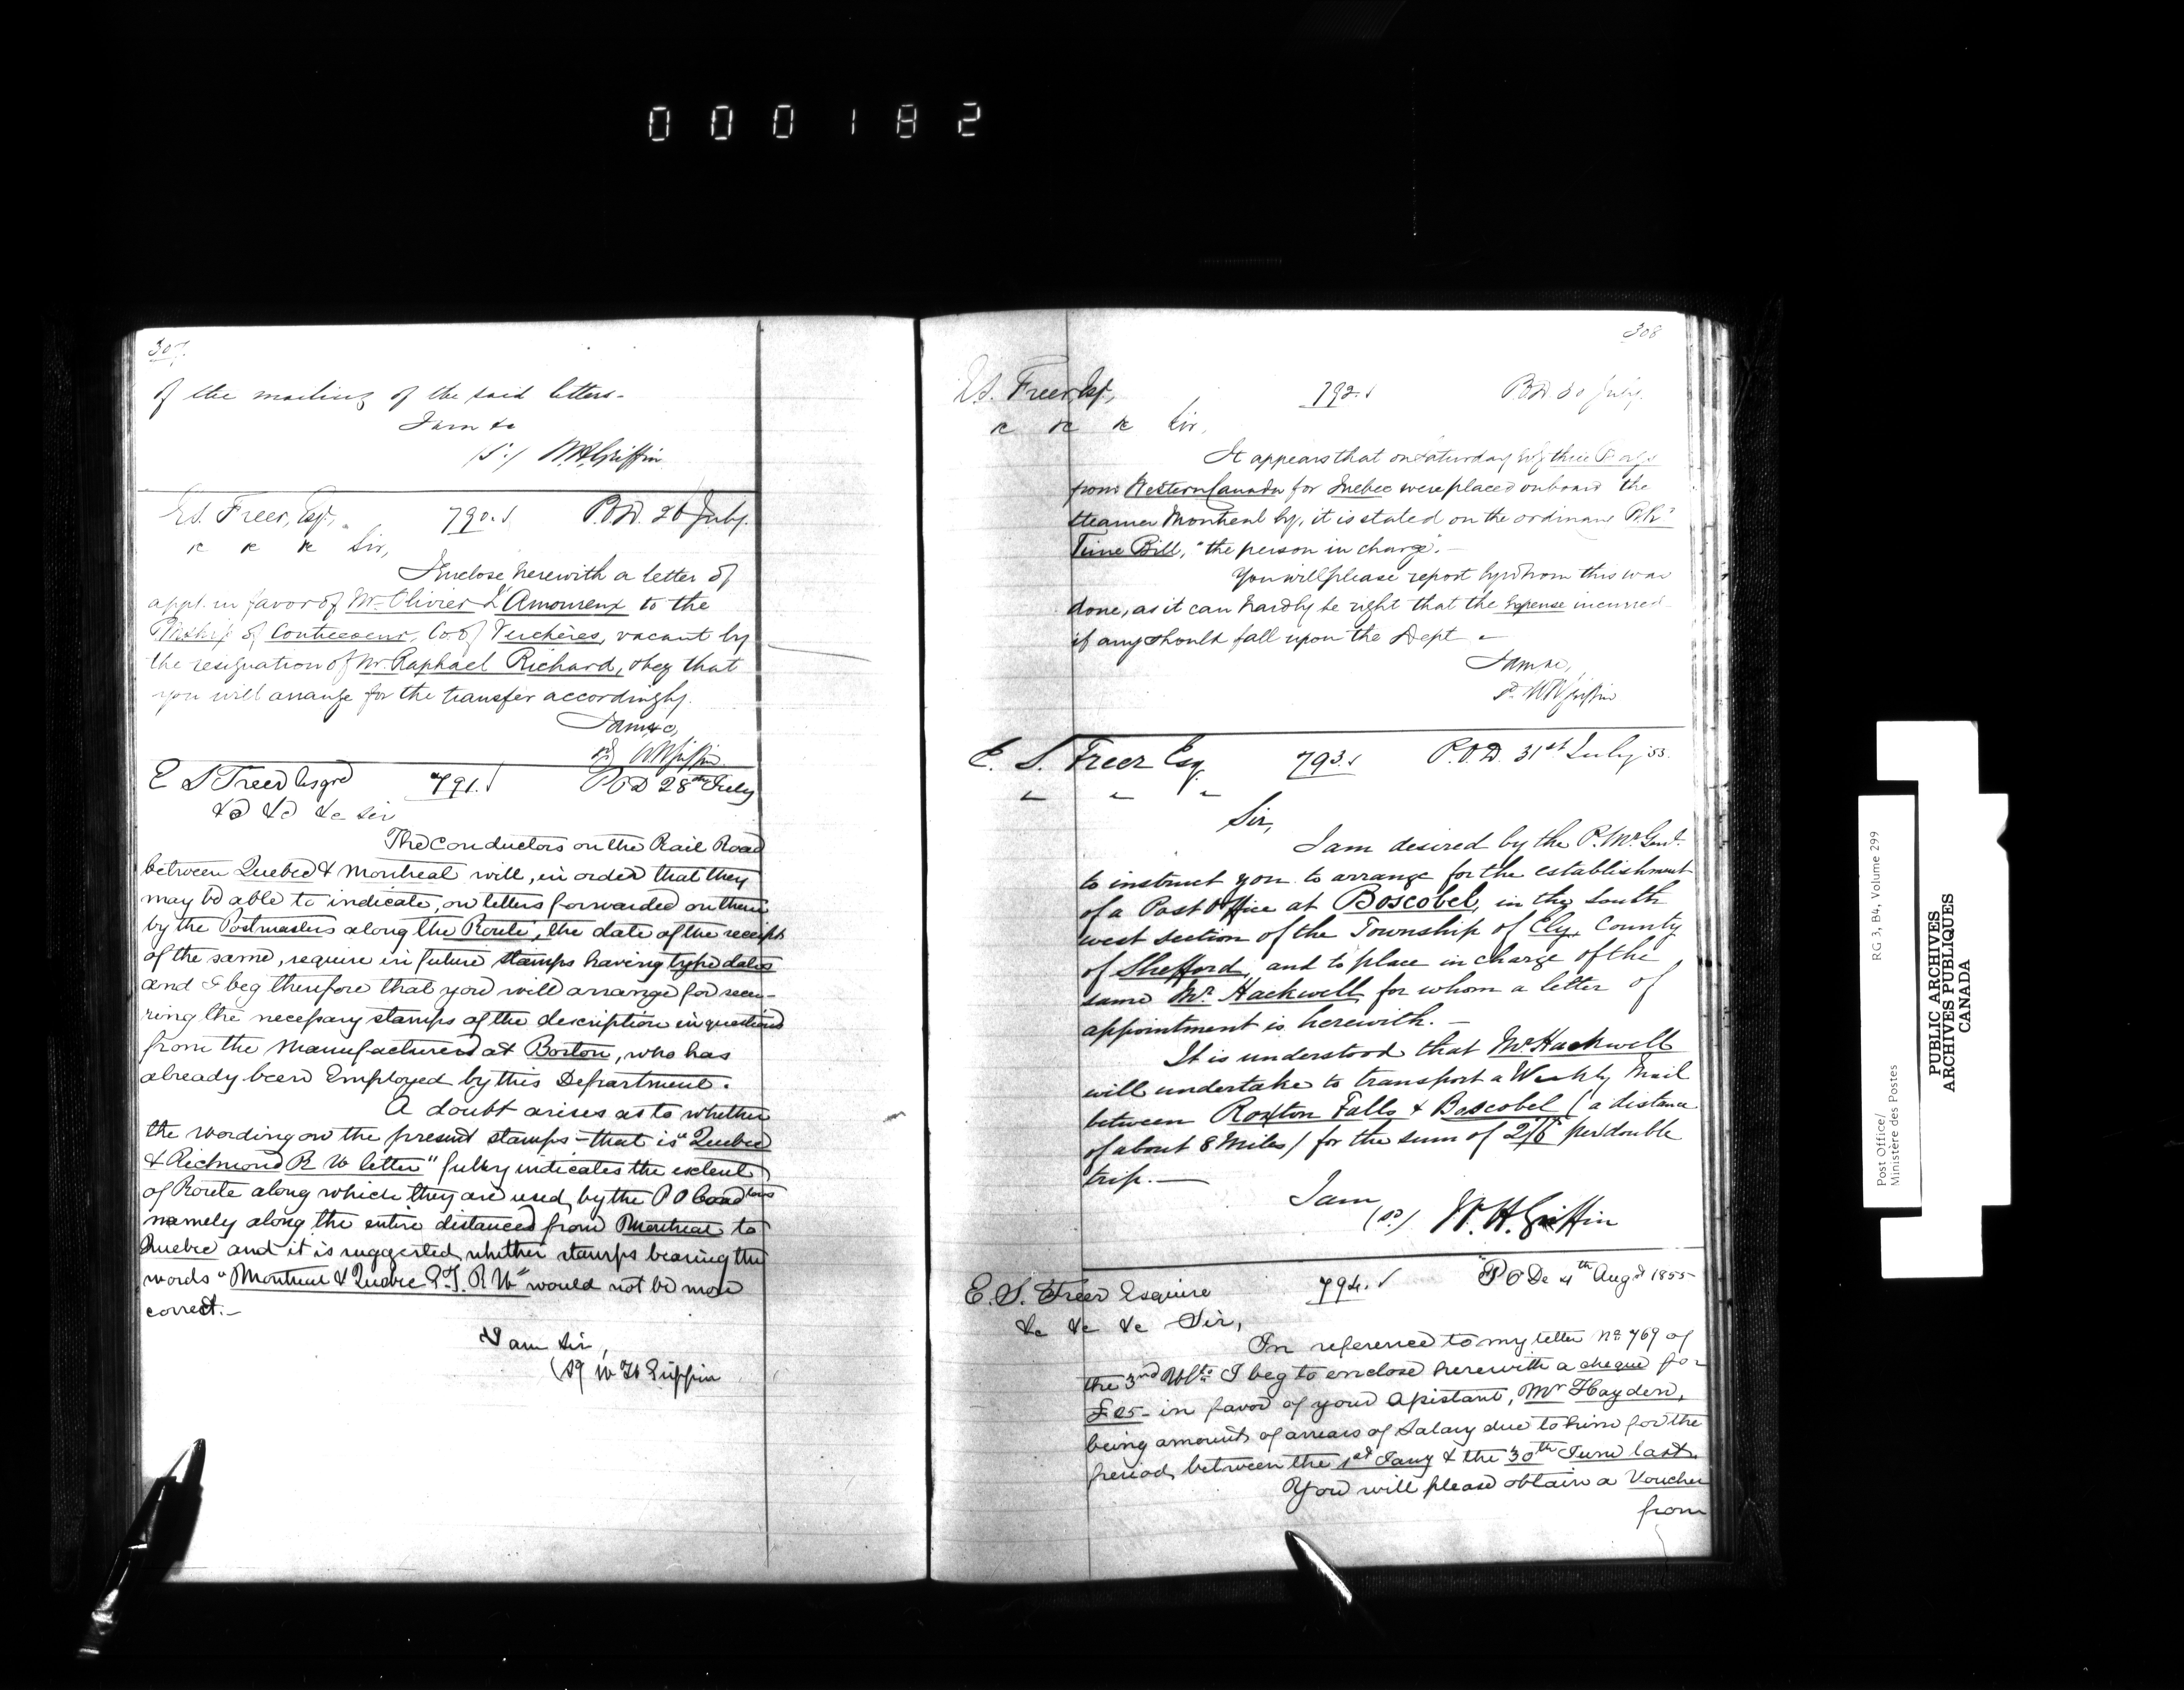 000182
307.
of the mailing of the said letters -
I am &c
(S.) W H Griffin
E.S. Freer, Esq., 790. P.O.D. 26 July.
&c &c &c Sir,
I enclose herewith a letter of
appt. in favor of Mr. Olivier L'Amoureux to the
PMship of Contrecoeur, Co of Verchères, vacant by
the resignation of Mr. Raphael Richard, & beg that
you will arrange for the transfer accordingly.
I am &c,
sd W H Griffin
E S Freer Esqre 791. P O D 28th July
&c &c &c Sir
The Conductors on the Rail Road
between Quebec & Montreal will, in order that they
may be able to indicate, on letters forwarded on them
by the Postmasters along the Route, the date of the receipt
of the same, require in future stamps having type dates
and I beg therefore that you will arrange for secu-
ring the necessary stamps of the description in question
from the Manufacturer at Boston, who has
already been Employed by this Department.
A doubt arises as to whether
the wording on the present stamps - that is "Quebec
& Richmond R W letter" fully indicates the extent
of Route along which they are used by the P O Conductors
namely along the entire distance from Montreal to
Quebec and it is suggested whether stamps bearing the
words "Montreal & Quebec R W" would not be more
correct. -
I am Sir,
(Sd W H Griffin
308
E.S. Freer, Esq., 792. P.O.D. 30 July.
&c &c &c Sir,
It appears that on Saturday three Bags
from Western Canada for Quebec were placed on board the
steamer Montreal by, it is stated on the ordinary
Time Bill, "the person in charge". -
You will please report by whom this was
done, as it can hardly be right that the Expense incurred
if any should fall upon the Dept -
I am &c,
sd. W H Griffin
E. S. Freer Esq. 793. P.O.D. 31st July '55.
Sir,
I am desired by the P. Mr. Genl.
to instruct you to arrange for the establishment
of a Post Office at Boscobel, in the South
west section of the Township of Ely, County
of Shefford, and to place in charge of the
same Mr. Hackwell, for whom a letter of
appointment is herewith. -
It is understood that Mr. Hackwell
will undertake to transport a Weekly Mail
between Roxton Falls & Boscobel (a distance
of about 8 Miles) for the sum of 2/6 per double
trip. -
I am
(sd.) W. H. Griffin
E. S. Freer Esquire 794. P O De 4th Augt 1855-
&c &c &c Sir,
In reference to my letter No. 769 of
the 3rd Ulto. I beg to enclose herewith a cheque for
£25- in favor of your Assistant, Mr Hayden,
being amount of arrears of Salary due to him for the
period between the 1st Jany & the 30th June last.
You will please obtain a Voucher
from
Post Office/
Ministère des Postes
RG 3, B4, Volume 299
PUBLIC ARCHIVES
ARCHIVES PUBLIQUES
CANADA